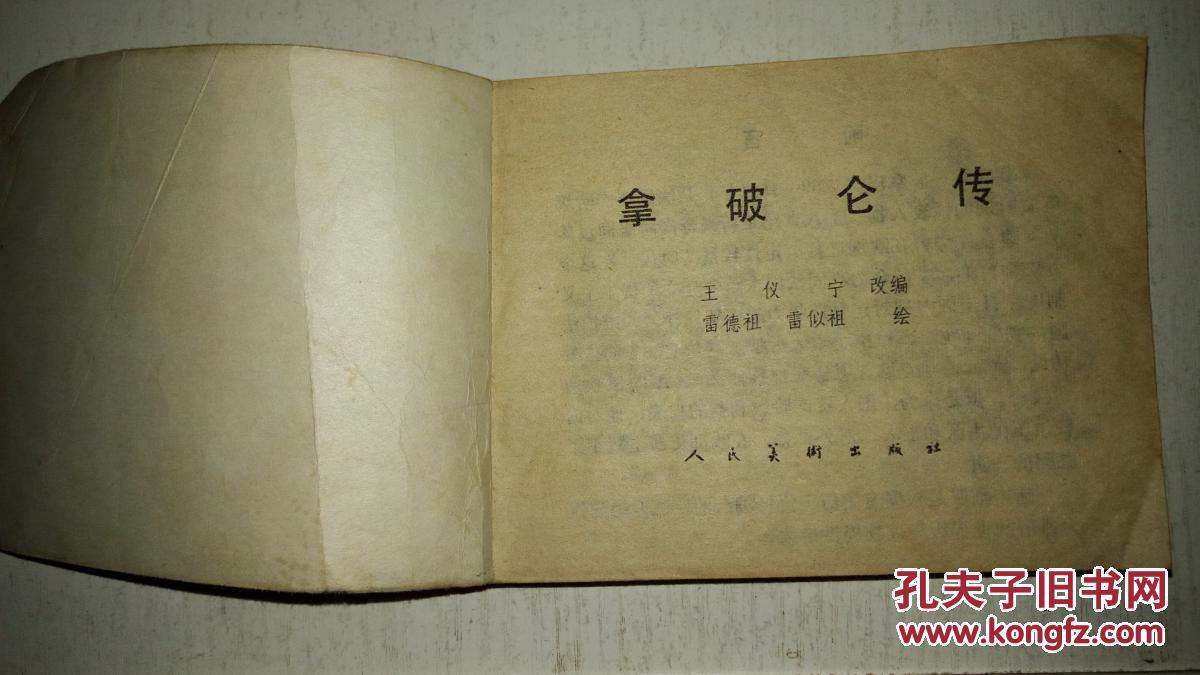 拿破仑传
王仪宁 改编
雷德祖 雷似祖 绘
人民美術出版社
孔夫子旧书网
www.kongfz.com